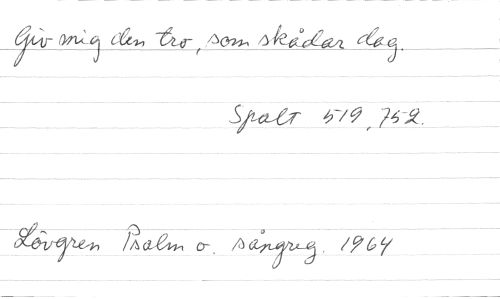 Giv mig den tro, som skådar dag.
Spalt 519, 752.
Lövgren Psalm o. sångreg. 1964